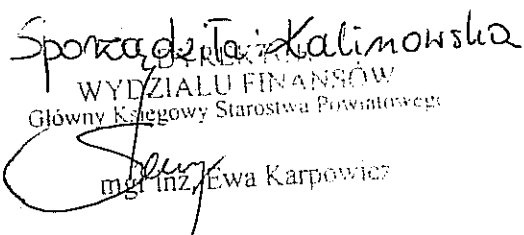 Sporządziła: Kalinowska
WYDZIAŁU FINANSÓW
Główny Księgowy Starostwa Powiatowego
mgr inż. Ewa Karpowicz